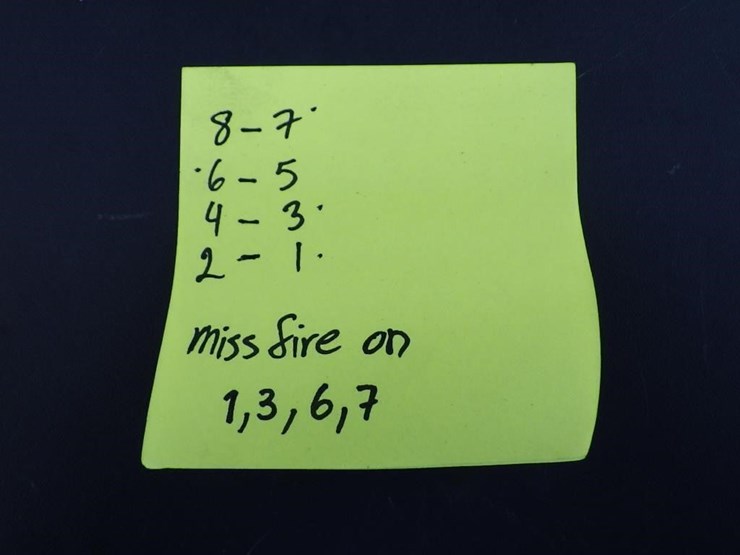 8 - 7·
·6 - 5
4 - 3·
2 - 1·
miss fire on
1,3,6,7